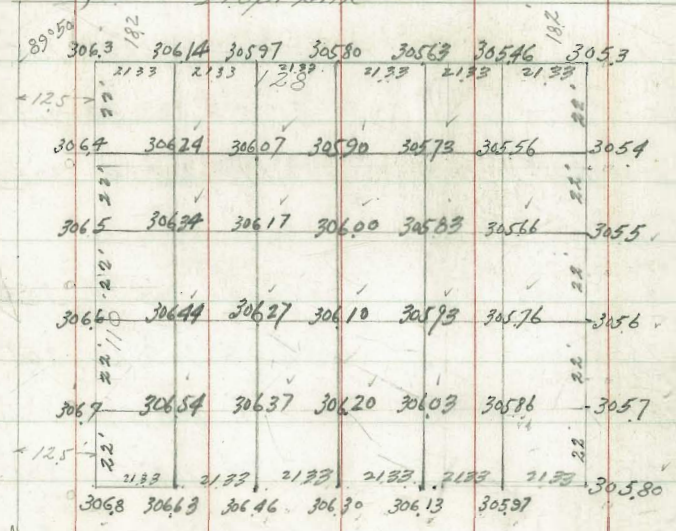 89°50' 182 182
306.3 306.14 305.97 305.80 305.63 305.46 305.3
21.33 21.33 21.33 21.33 21.33 21.33
128
12.5 22' 22'
306.4 306.24 306.07 305.90 305.73 305.56 305.4
22' 22'
306.5 306.34 306.17 306.00 305.83 305.66 305.5
22' 22'
306.6 306.44 306.27 306.10 305.93 305.76 305.6
110
22' 22'
306.7 306.54 306.37 306.20 306.03 305.86 305.7
12.5 22' 22'
21.33 21.33 21.33 21.33 21.33 21.33
306.8 306.63 306.46 306.30 306.13 305.97 305.80